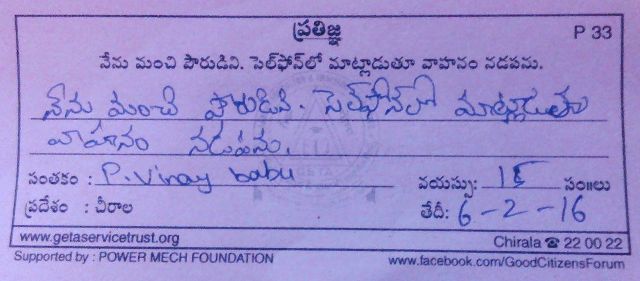 ప్రతిజ్ఞ P 33
నేను మంచి పౌరుడిని. సెల్‌ఫోన్‌లో మాట్లాడుతూ వాహనం నడపను.
నేను మంచి పౌరుడిని. సెల్‌ఫోన్‌లో మాట్లాడుతూ
వాహనం నడపను.
సంతకం : P. Vinay babu వయస్సు: సం॥లు
ప్రదేశం : చీరాల తేదీ: 6-2-16
www.getaservicetrust.org Chirala ☎ 22 00 22
Supported by : POWER MECH FOUNDATION www.facebook.com/GoodCitizensForum